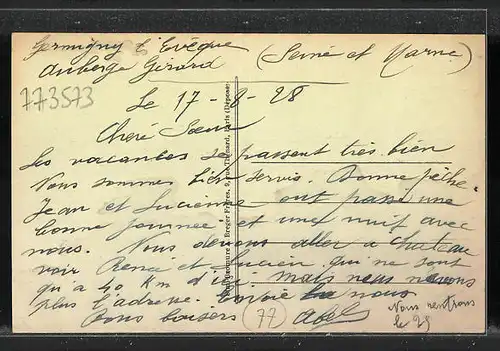 Germigny l'Evêque (Seine et Marne)
Auberge Girard
773573
Le 17-8-28
Chere Sœur
Les vacances se passent très bien
Nous sommes bien servis. Bonne pêche.
Jean et Lucienne ont passé une
bonne journée et une nuit avec
nous. Nous devons aller a Chateau
voir René et Lucien qui ne sont
qu'a 40 Km d'ici mais nous navons
plus l'adresse. Envoie la nous
Bons baisers (77) Abel
Nous rentrons
le 29
Breger Frères, 9, rue Thénard, Paris (Déposé)